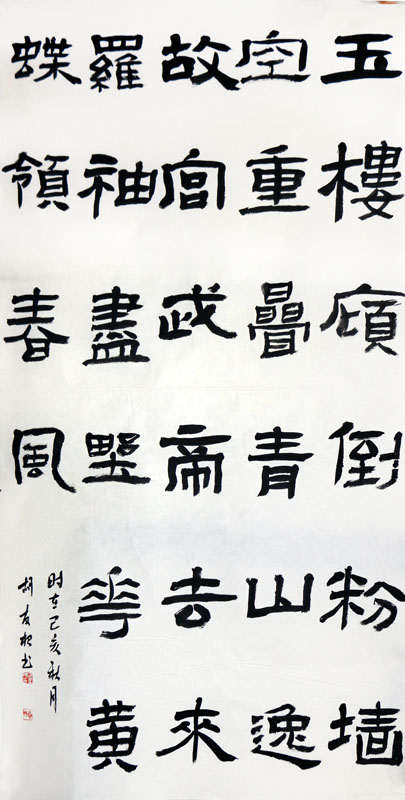 玉樓傾倒粉墙
空重疊青山遶
故宫武帝去來
羅袖盡野華黄
蝶領春風
时在己亥秋月
胡友松书